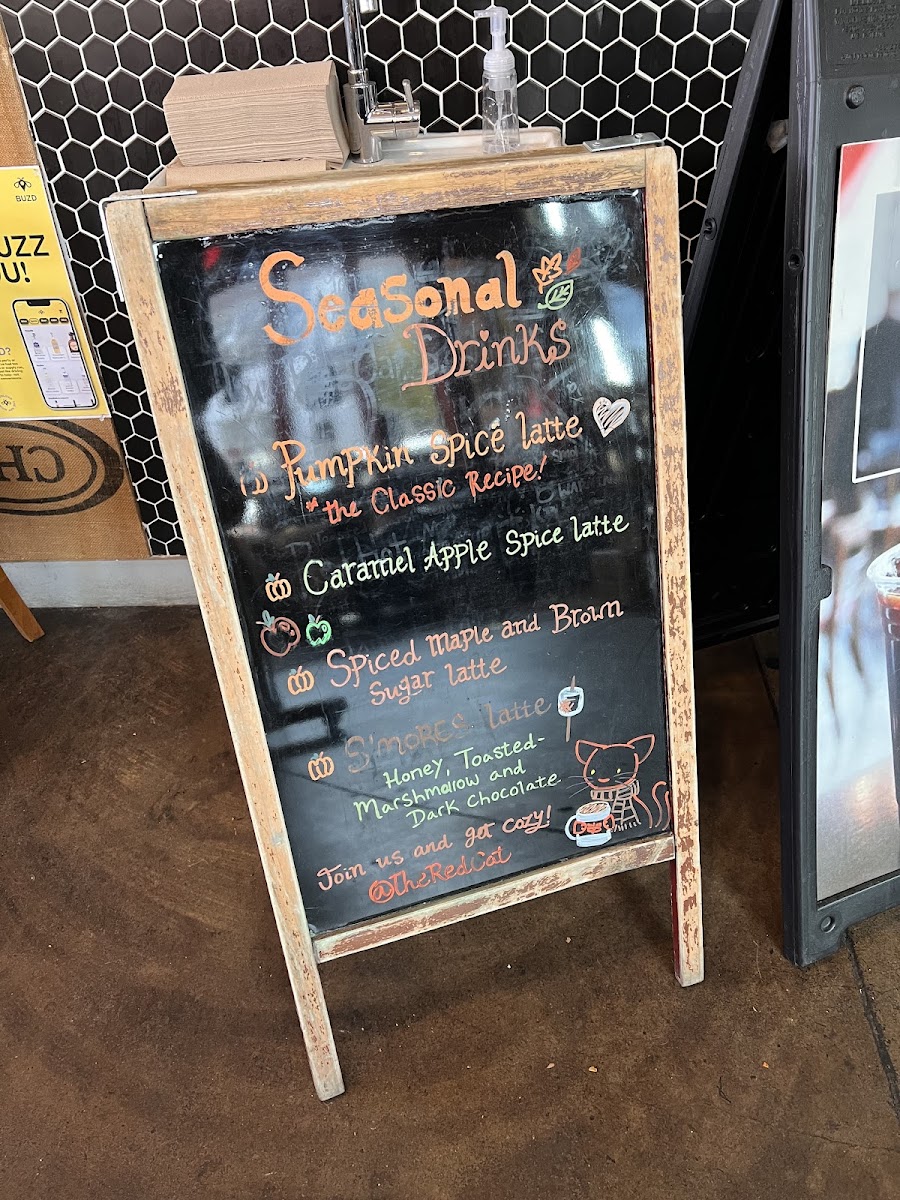 BUZD
UZZ
OU!
D?
CH
Seasonal
Drinks
Pumpkin Spice latte
*the Classic Recipe!
Caramel Apple Spice latte
Spiced Maple and Brown
Sugar latte
S'mores latte
Honey, Toasted-
Marshmallow and
Dark Chocolate
Join us and get cozy!
@TheRedCat